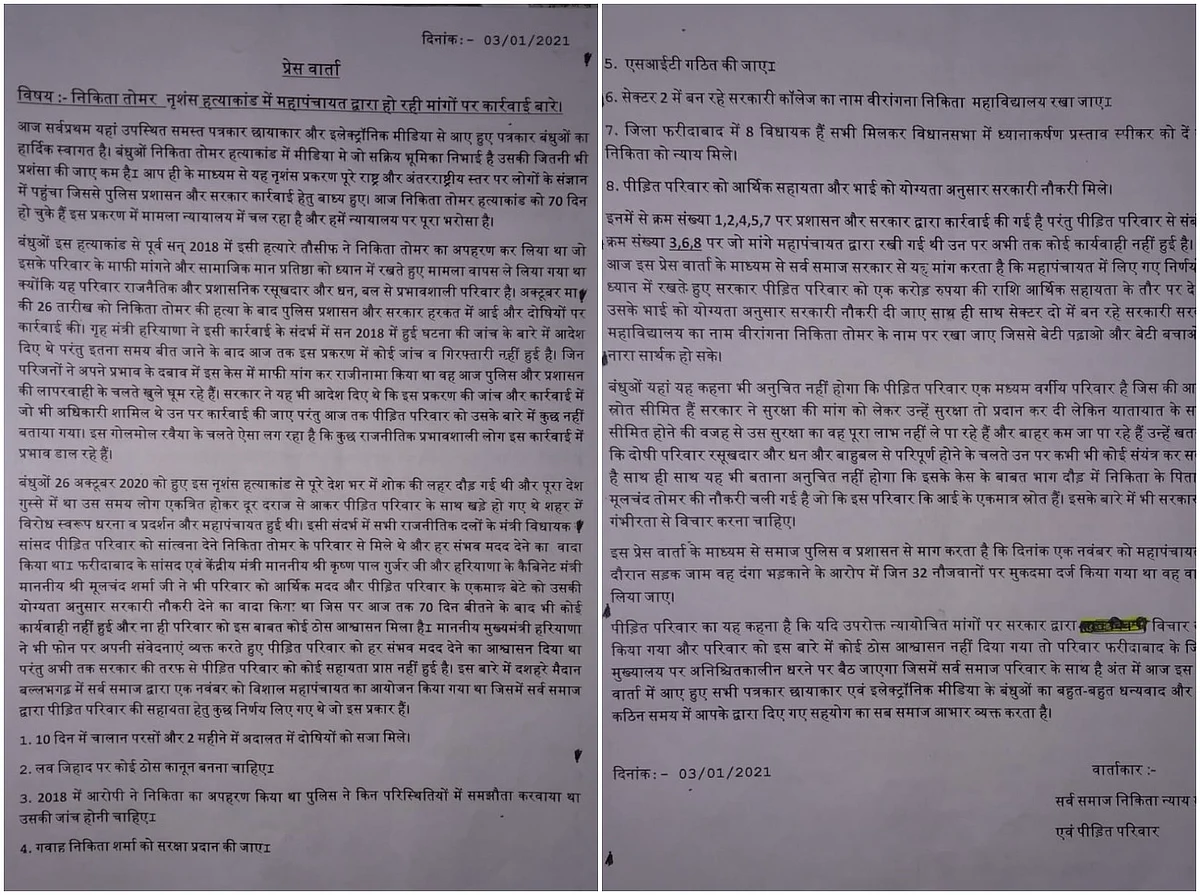 दिनांक:- 03/01/2021
प्रेस वार्ता
विषय :- निकिता तोमर नृशंस हत्याकांड में महापंचायत द्वारा हो रही मांगों पर कार्रवाई बारे।
आज सर्वप्रथम यहां उपस्थित समस्त पत्रकार छायाकार और इलेक्ट्रॉनिक मीडिया से आए हुए पत्रकार बंधुओं का
हार्दिक स्वागत है। बंधुओं निकिता तोमर हत्याकांड में मीडिया मे जो सक्रिय भूमिका निभाई है उसकी जितनी भी
प्रशंसा की जाए कम है। आप ही के माध्यम से यह नृशंस प्रकरण पूरे राष्ट्र और अंतरराष्ट्रीय स्तर पर लोगों के संज्ञान
में पहुंचा जिससे पुलिस प्रशासन और सरकार कार्रवाई हेतु बाध्य हुए। आज निकिता तोमर हत्याकांड को 70 दिन
हो चुके हैं इस प्रकरण में मामला न्यायालय में चल रहा है और हमें न्यायालय पर पूरा भरोसा है।
बंधुओं इस हत्याकांड से पूर्व सन् 2018 में इसी हत्यारे तौसीफ ने निकिता तोमर का अपहरण कर लिया था जो
इसके परिवार के माफी मांगने और सामाजिक मान प्रतिष्ठा को ध्यान में रखते हुए मामला वापस ले लिया गया था
क्योंकि यह परिवार राजनैतिक और प्रशासनिक रसूखदार और धन, बल से प्रभावशाली परिवार है। अक्टूबर माह
की 26 तारीख को निकिता तोमर की हत्या के बाद पुलिस प्रशासन और सरकार हरकत में आई और दोषियों पर
कार्रवाई की। गृह मंत्री हरियाणा ने इसी कार्रवाई के संदर्भ में सन 2018 में हुई घटना की जांच के बारे में आदेश
दिए थे परंतु इतना समय बीत जाने के बाद आज तक इस प्रकरण में कोई जांच व गिरफ्तारी नहीं हुई है। जिन
परिजनों ने अपने प्रभाव के दबाव में इस केस में माफी यांग कर राजीनामा किया था वह आज पुलिस और प्रशासन
की लापरवाही के चलते खुले घूम रहे हैं। सरकार ने यह भी आदेश दिए थे कि इस प्रकरण की जांच और कार्रवाई
जो भी अधिकारी शामिल थे उन पर कार्रवाई की जाए परंतु आज तक पीड़ित परिवार को उसके बारे में कुछ नहीं
बताया गया। इस गोलमोल रवैया के चलते ऐसा लग रहा है कि कुछ राजनीतिक प्रभावशाली लोग इस कार्रवाई में
प्रभाव डाल रहे हैं।
बंधुओं 26 अक्टूबर 2020 को हुए इस नृशंस हत्याकांड से पूरे देश भर में शोक की लहर दौड़ गई थी और पूरा देश
गुस्से में था उस समय लोग एकत्रित होकर दूर दराज से आकर पीड़ित परिवार के साथ खड़े हो गए थे शहर में
विरोध स्वरूप धरना व प्रदर्शन और महापंचायत हुई थी। इसी संदर्भ में सभी राजनीतिक दलों के मंत्री विधायक
सांसद पीड़ित परिवार को सांत्वना देने निकिता तोमर के परिवार से मिले थे और हर संभव मदद देने का वादा
किया था। फरीदाबाद के सांसद एवं केंद्रीय मंत्री माननीय श्री कृष्ण पाल गुर्जर जी और हरियाणा के कैबिनेट मंत्री
माननीय श्री मूलचंद शर्मा जी ने भी परिवार को आर्थिक मदद और पीड़ित परिवार के एकमात्र बेटे को उसकी
योग्यता अनुसार सरकारी नौकरी देने का वादा किया था जिस पर आज तक 70 दिन बीतने के बाद भी कोई
कार्यवाही नहीं हुई और ना ही परिवार को इस बाबत कोई ठोस आश्वासन मिला है। माननीय मुख्यमंत्री हरियाणा
ने भी फोन पर अपनी संवेदनाएं व्यक्त करते हुए पीड़ित परिवार को हर संभव मदद देने का आश्वासन दिया था
परंतु अभी तक सरकार की तरफ से पीड़ित परिवार को कोई सहायता प्राप्त नहीं हुई है। इस बारे में दशहरे मैदान
बल्लभगढ़ में सर्व समाज द्वारा एक नवंबर को विशाल महापंचायत का आयोजन किया गया था जिसमें सर्व समाज
द्वारा पीड़ित परिवार की सहायता हेतु कुछ निर्णय लिए गए थे जो इस प्रकार हैं।
1. 10 दिन में चालान परसों और 2 महीने में अदालत में दोषियों को सजा मिले।
2. लव जिहाद पर कोई ठोस कानून बनना चाहिए।
3. 2018 में आरोपी ने निकिता का अपहरण किया था पुलिस ने किन परिस्थितियों में समझौता करवाया था
उसकी जांच होनी चाहिए।
4. गवाह निकिता शर्मा को सरक्षा प्रदान की जाए।
5. एसआईटी गठित की जाए।
6. सेक्टर 2 में बन रहे सरकारी कॉलेज का नाम वीरांगना निकिता महाविद्यालय रखा जाए।
7. जिला फरीदाबाद में 8 विधायक हैं सभी मिलकर विधानसभा में ध्यानाकर्षण प्रस्ताव स्पीकर को दें
निकिता को न्याय मिले।
8. पीड़ित परिवार को आर्थिक सहायता और भाई को योग्यता अनुसार सरकारी नौकरी मिले।
इनमें से क्रम संख्या 1,2,4,5,7 पर प्रशासन और सरकार द्वारा कार्रवाई की गई है परंतु पीड़ित परिवार से
क्रम संख्या 3,6,8 पर जो मांगे महापंचायत द्वारा रखी गई थी उन पर अभी तक कोई कार्यवाही नहीं हुई है।
आज इस प्रेस वार्ता के माध्यम से सर्व समाज सरकार से यह मांग करता है कि महापंचायत में लिए गए निर्णय
ध्यान में रखते हुए सरकार पीड़ित परिवार को एक करोड़ रुपया की राशि आर्थिक सहायता के तौर पर दे
उसके भाई को योग्यता अनुसार सरकारी नौकरी दी जाए साथ ही साथ सेक्टर दो में बन रहे सरकारी
महाविद्यालय का नाम वीरांगना निकिता तोमर के नाम पर रखा जाए जिससे बेटी पढ़ाओ और बेटी बचाओ
नारा सार्थक हो सके।
बंधुओं यहां यह कहना भी अनुचित नहीं होगा कि पीड़ित परिवार एक मध्यम वर्गीय परिवार है जिस की
स्रोत सीमित हैं सरकार ने सुरक्षा की मांग को लेकर उन्हें सुरक्षा तो प्रदान कर दी लेकिन यातायात के
सीमित होने की वजह से उस सुरक्षा का वह पूरा लाभ नहीं ले पा रहे हैं और बाहर कम जा पा रहे हैं उन्हें
कि दोषी परिवार रसूखदार और धन और बाहुबल से परिपूर्ण होने के चलते उन पर कभी भी कोई संयंत्र कर
है साथ ही साथ यह भी बताना अनुचित नहीं होगा कि इसके केस के बाबत भाग दौड़ में निकिता के पिता
मूलचंद तोमर की नौकरी चली गई है जो कि इस परिवार कि आई के एकमात्र स्रोत हैं। इसके बारे में भी सरकार
गंभीरता से विचार करना चाहिए।
इस प्रेस वार्ता के माध्यम से समाज पुलिस व प्रशासन से माग करता है कि दिनांक एक नवंबर को महापंचायत
दौरान सड़क जाम वह दंगा भड़काने के आरोप में जिन 32 नौजवानों पर मुकदमा दर्ज किया गया था वह
लिया जाए।
पीड़ित परिवार का यह कहना है कि यदि उपरोक्त न्यायोचित मांगों पर सरकार द्वारा विचार
किया गया और परिवार को इस बारे में कोई ठोस आश्वासन नहीं दिया गया तो परिवार फरीदाबाद के
मुख्यालय पर अनिश्चितकालीन धरने पर बैठ जाएगा जिसमें सर्व समाज परिवार के साथ है अंत में आज इस
वार्ता में आए हुए सभी पत्रकार छायाकार एवं इलेक्ट्रॉनिक मीडिया के बंधुओं का बहुत-बहुत धन्यवाद और
कठिन समय में आपके द्वारा दिए गए सहयोग का सब समाज आभार व्यक्त करता है।
दिनांक:- 03/01/2021
वार्ताकार :-
सर्व समाज निकिता न्याय
एवं पीड़ित परिवार